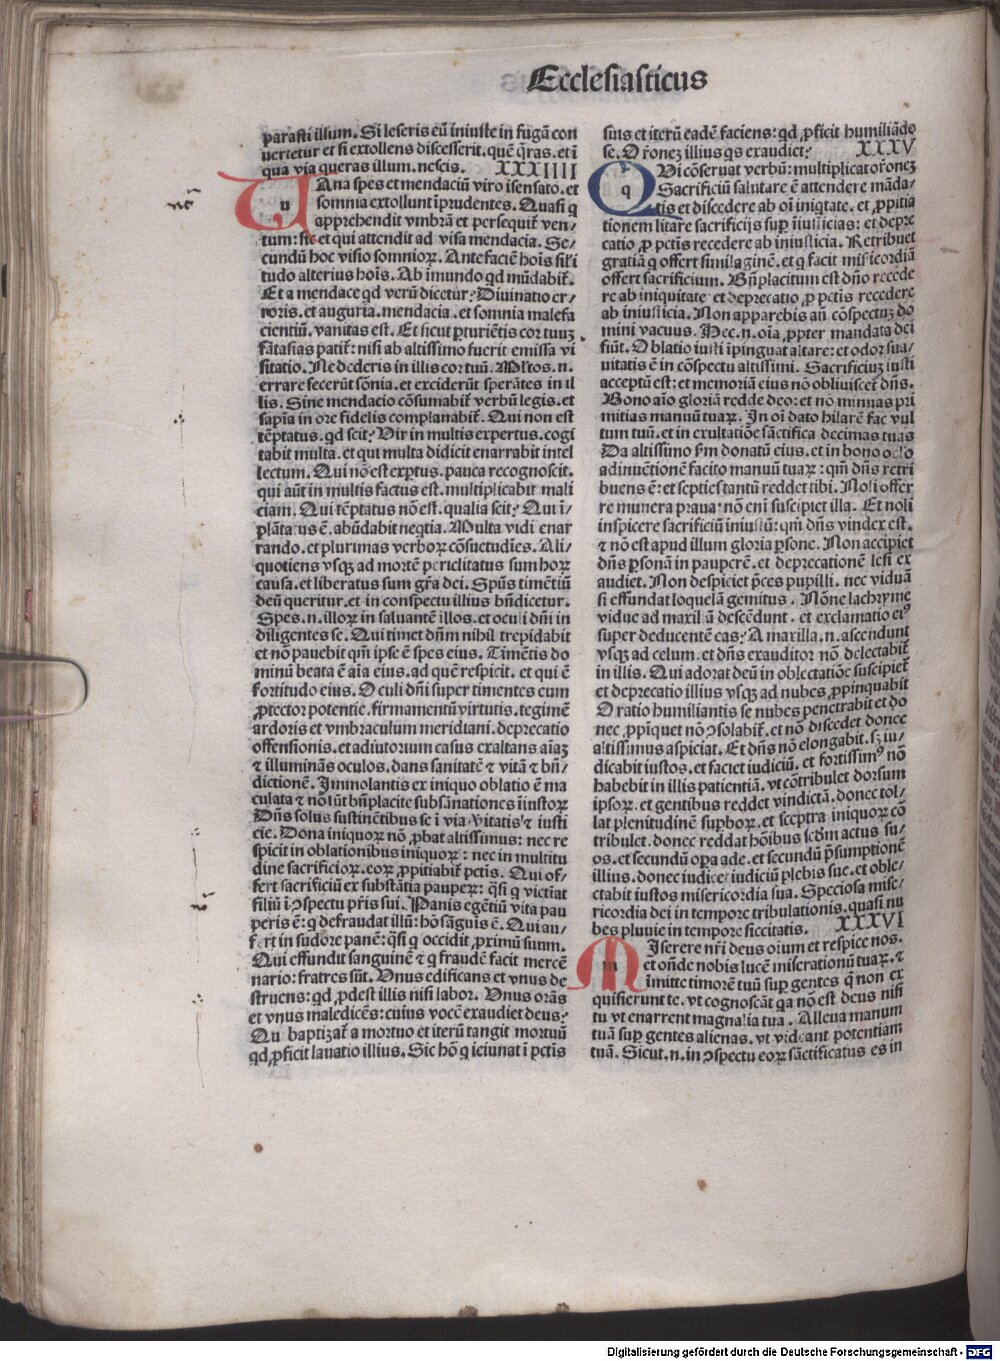 Ecclesiasticus
parasti illum. Si leseris eū iniuste in fugā con
uertetur et si extollens discesserit. quē q̄ras. et ī
qua via queras illum. nescis. XXXIIII
UAna spes et mendaciū viro īsensato. et
somnia extollunt īprudentes. Quasi q
apprehendit vmbrā et persequit᷑ ven/
tum: sic et qui attendit ad visa mendacia. Se/
cundū hoc visio somnioꝝ. Ante faciē hoīs sil'i
tudo alterius hoīs. Ab īmundo qd mūdabit᷑.
Et a mendace qd verū dicetur? Diuinatio er/
roris. et auguria. mendacia. et somnia malefa
cientiū. vanitas est. Et sicut ꝑturiētis cor tuuꝫ
fātasias patit᷑: nisi ab altissimo fuerit emissa vi
sitatio. Ne dederis in illis cor tuū. Ml'tos .n.
errare fecerūt sōnia. et exciderūt sperātes in il
lis. Sine mendacio cōsumabit᷑ verbū legis. et
sapīa in ore fidelis complanabit᷑. Qui non est
tēptatus. qd scit? Vir in multis expertus. cogi
tabit multa. et qui multa didicit enarrabit intel
lectum. Qui nō est exꝑtus. pauca recognoscit.
qui aūt in multis factus est. multiplicabit mali
ciam. Qui tēptatus nō est. qualia scit? Qui ī/
plātatus ē. abūdabit neqtia. Multa vidi enar
rando. et plurimas verboꝝ cōsuetudīes. Ali/
quotiens vsqꝫ ad mortē periclitatus sum hoꝝ
causa. et liberatus sum gr̄a dei. Sp̄us timētiū
deū queritur. et in conspectu illius bn̄dicetur.
Spes .n. illoꝝ in saluantē illos. et oculi dn̄i in
diligentes se. Qui timet dn̄m nihil trepidabit
et nō pauebit qm̄ ipse ē spes eius. Timētis do
minū beata ē aīa eius. ad quē respicit. et qui ē
fortitudo eius. Oculi dn̄i super timentes eum
ꝓtector potentie. firmamentū virtutis. tegimē
ardoris et vmbraculum meridiani. deprecatio
offensionis. et adiutorium casus exaltans aīaꝫ
⁊ illuminās oculos. dans sanitatē ⁊ vitā ⁊ bn̄/
dictionē. Immolantis ex iniquo oblatio ē ma
culata ⁊ nō sūt bn̄placite subsānationes īiustoꝝ
Dn̄s solus sustinētibus se ī via vitatis ⁊ iusti
cie. Dona iniquoꝝ nō ꝓbat altissimus: nec re
spicit in oblationibus iniquoꝝ: nec in multitu
dine sacrificioꝝ. eoꝝ ꝓpitiabit᷑ pctis. Qui of/
fert sacrificiū ex substātia pauperꝝ: q̄si q victīat
filiū ī ɔspectu pr̄is sui. Panis egētiū vita pau
peris ē: q defraudat illū: hō sāguīs ē. Qui au/
fert in sudore panē: q̄si q occidit ꝓximū suum.
Qui effundit sanguinē ⁊ q fraudē facit mercē
nario: fratres sūt. Vnus edificans et vnus de
struens: qd ꝓdest illis nisi labor. Vnus orās
et vnus maledicēs: cuius vocē exaudiet deus?
Qui baptizat᷑ a mortuo et iterū tangit mortuū
qd ꝓficit lauatio illius. Sic hō q ieiunat ī pctīs
suis et iterū eadē faciens: qd ꝓficit humiliādo
se. Or̄onez illius qs exaudiet? XXXV
QVi cōseruat verbū: multiplicat or̄oneꝫ
Sacrificiū salutare ē attendere māda/
tis et discedere ab oī iniqtate. et ꝓpitia
tionem litare sacrificijs suꝑ īiusticias: et depre
catio ꝓ pctīs recedere ab iniusticia. Retribuet
gratiā q offert similaginē. et q facit misericordiā
offert sacrificium. Bn̄placitum est dn̄o recede
re ab iniquitate et deprecatio ꝓ pctīs recedere
ab iniusticia. Non apparebis an̄ cōspectuꝫ do
mini vacuus. Hec .n. oīa ꝓpter mandata dei
fiūt. Oblatio iusti īpinguat altare: et odor sua/
uitatis ē in cōspectu altissimi. Sacrificiuꝫ iusti
acceptū est: et memoriā eius nō obliuiscet᷑ dn̄s.
Bono aīo gloriā redde deo: et nō minuas pri
mitias manuū tuaꝝ. In oī dato hilarē fac vul
tum tuū. et in exultatiōe sāctifica decimas tuas
Da altissimo ẜm donatū eius. et in bono oclo
adinuētionē facito manuū tuaꝝ: qm̄ dn̄s retri
buens ē: et septies tantū reddet tibi. Noli offer
re munera praua: nō enī suscipiet illa. Et noli
inspicere sacrificiū iniustū: qm̄ dn̄s vindex est.
⁊ nō est apud illum gloria ꝑsone. Non accipiet
dn̄s ꝑsonā in pauperē. et deprecationē lesi ex
audiet. Non despiciet p̄ces pupilli. nec viduā
si effundat loquelā gemitus. Nōne lachryme
vidue ad maxillā descēdunt. et exclamatio eiꝰ
super deducentē eas? A maxilla .n. ascendunt
vsqꝫ ad celum. et dn̄s exauditor nō delectabit᷑
in illis. Qui adorat deū in oblectatiōe suscipiet᷑
et deprecatio illius vsqꝫ ad nubes ꝓpinquabit
Oratio humiliantis se nubes penetrabit et do
nec ꝓpīquet nō ɔsolabit᷑. et nō discedet donec
altissimus aspiciat. Et dn̄s nō elongabit. sꝫ iu/
dicabit iustos. et faciet iudiciū. et fortissimꝰ nō
habebit in illis patientiā. vt cōtribulet dorsum
ipsoꝝ. et gentibus reddet vindictā. donec tol/
lat plenitudinē suꝑboꝝ. et sceptra iniquoꝝ cō
tribulet. donec reddat hōibus scdm actus su/
os. et secundū oꝑa ade. et secundū p̄sumptionē
illius. donec iudicet iudiciū plebis sue. et oble/
ctabit iustos misericordia sua. Speciosa mise/
ricordia dei in tempore tribulationis. quasi nu
bes pluuie in tempore siccitatis. XXXVI
MIserere nr̄i deus oīum et respice nos.
et on̄de nobis lucē miserationū tuaꝝ. ⁊
īmitte timorē tuū suꝑ gentes q̄ non ex
quisierunt te. vt cognoscāt qa nō est deus nisi
tu vt enarrent magnalia tua. Alleua manum
tuā suꝑ gentes alienas. vt videant potentiam
tuā. Sicut .n. in ɔspectu eoꝝ sāctificatus es in
Digitalisierung gefördert durch die Deutsche Forschungsgemeinschaft - DFG